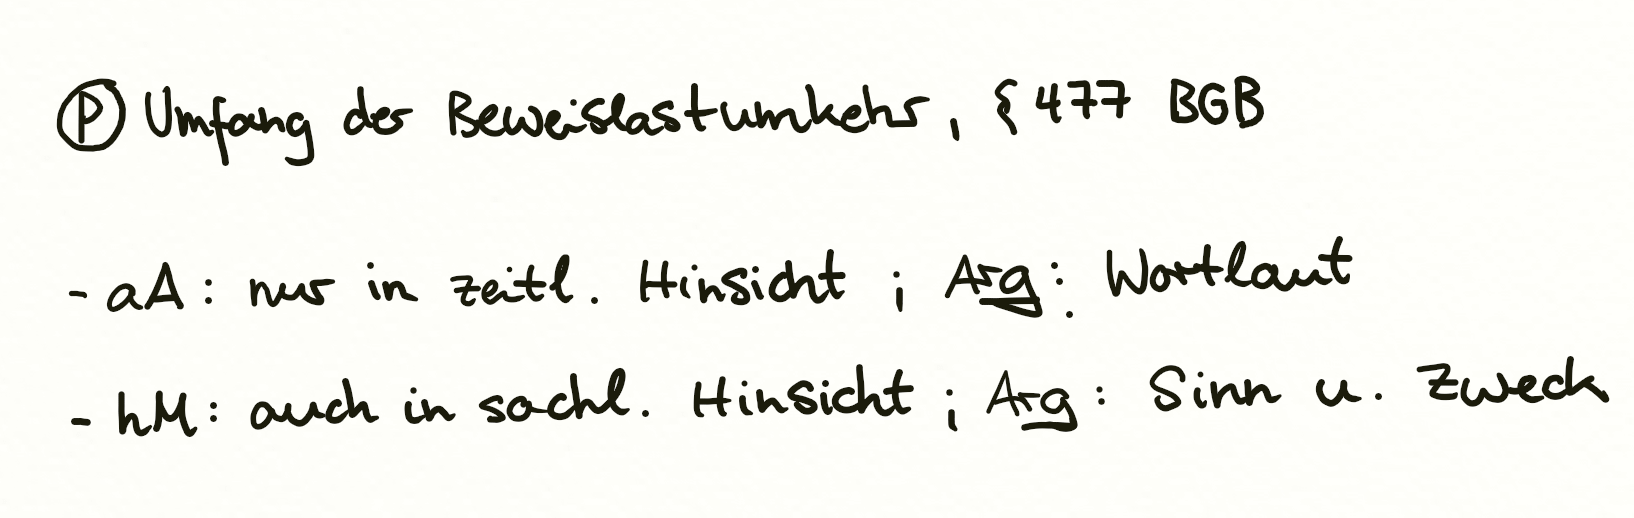 Ⓟ Umfang der Beweislastumkehr, § 477 BGB
- aA: nur in zeitl. Hinsicht ; Arg: Wortlaut
- hM: auch in sachl. Hinsicht ; Arg: Sinn u. Zweck